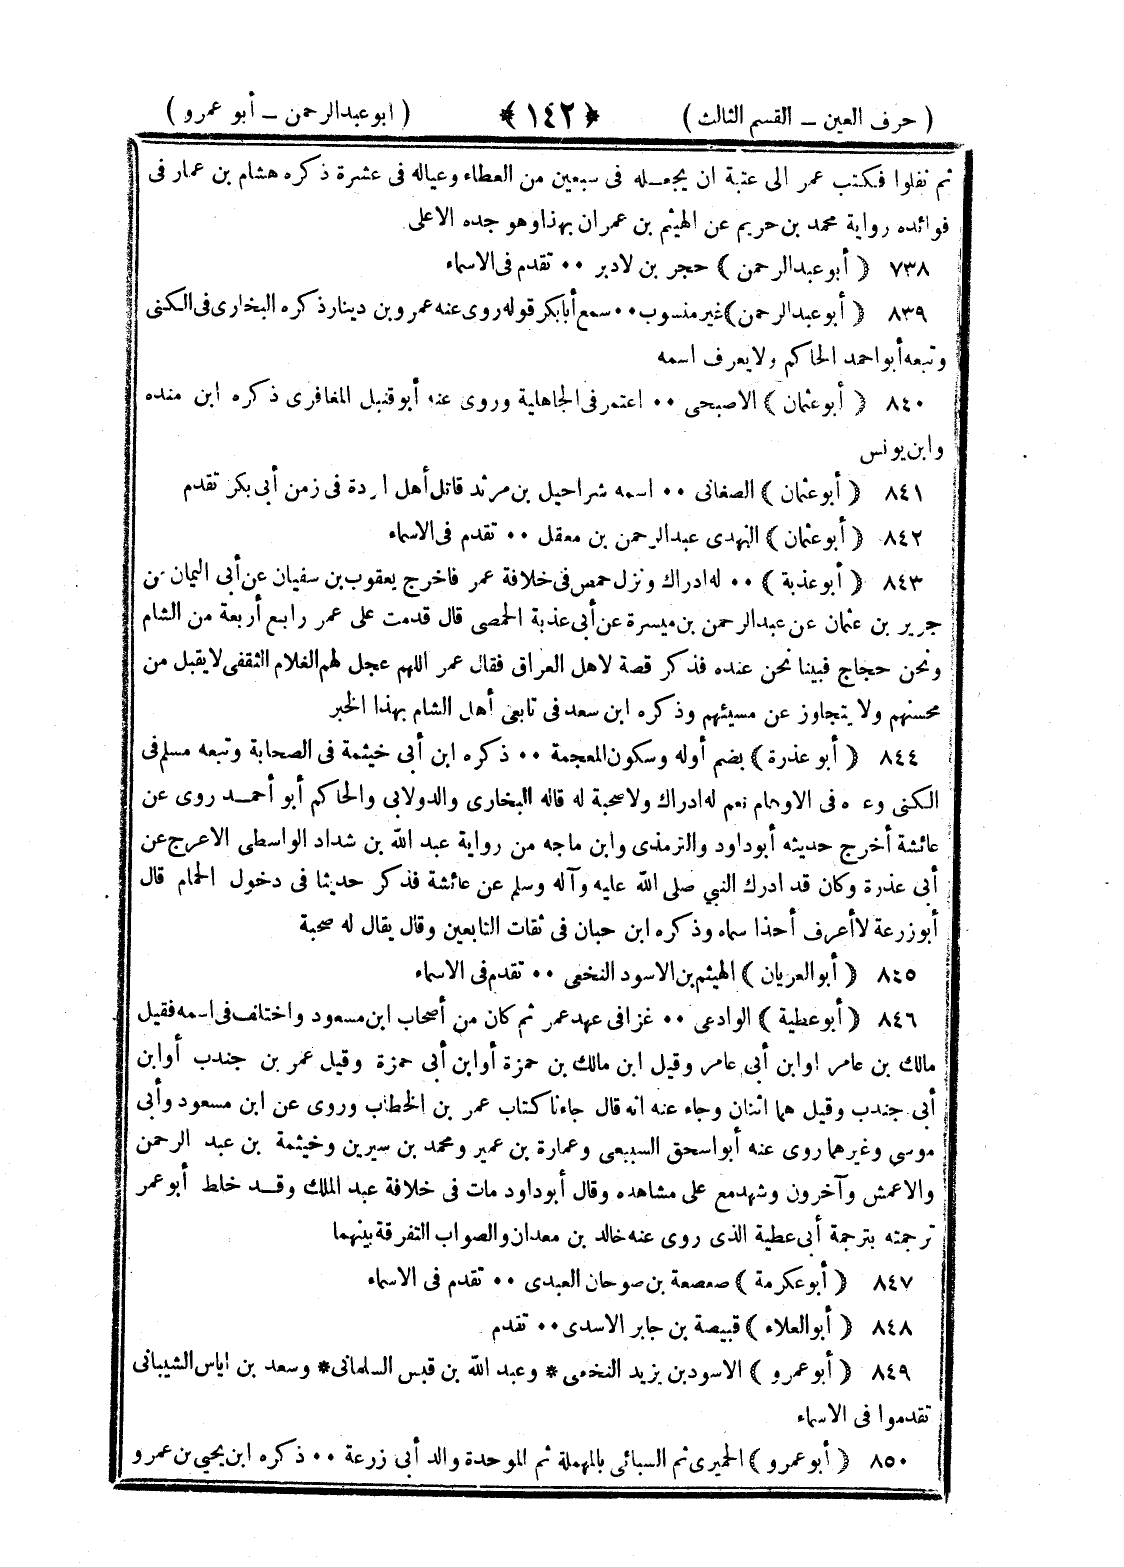 ( حرف العين – القسم الثالث ) ﴿ ١٤٢ ﴾ ( ابو عبدالرحمن – أبو عمرو )
ثم نفلوا فكتب عمر الى عتبة ان يجعله فى سبعين من العطاء وعياله فى عشرة ذكره هشام بن عمار فى
فوائده رواية محمد بن حريم عن الهيثم بن عمران بهذا وهو جده الاعلى
٧٣٨ ( أبو عبدالرحمن ) حجر بن لادبر ٠٠ تقدم فى الاسماء
٨٣٩ ( أبو عبدالرحمن ) غير منسوب ٠٠ سمع أبابكر قوله روى عنه عمرو بن دينار ذكره البخارى فى الكنى
وتبعه أبو احمد الحاكم ولا يعرف اسمه
٨٤٠ ( أبو عثمان ) الاصبحى ٠٠ اعتمر فى الجاهلية وروى عنه أبو قنبل المغافرى ذكره ابن منده
وابن يونس
٨٤١ ( أبو عثمان ) الصغانى ٠٠ اسمه شراحيل بن مرثد قاتل أهل الردة فى زمن أبى بكر تقدم
٨٤٢ ( أبو عثمان ) النهدى عبدالرحمن بن معقل ٠٠ تقدم فى الاسماء
٨٤٣ ( أبو عذبة ) ٠٠ له ادراك ونزل حمص فى خلافة عمر فاخرج يعقوب بن سفيان عن أبى اليمان عن
جرير بن عثمان عن عبدالرحمن بن ميسرة عن أبى عذبة الحمصى قال قدمت على عمر رابع أربعة من الشام
ونحن حجاج فبينا نحن عنده فذكر قصة لاهل العراق فقال عمر اللهم عجل لهم الغلام الثقفى لا يقبل من
محسنهم ولا يتجاوز عن مسيئهم وذكره ابن سعد فى تابعى أهل الشام بهذا الخبر
٨٤٤ ( أبو عذرة ) بضم أوله وسكون المعجمة ٠٠ ذكره ابن أبى خيثمة فى الصحابة وتبعه مسلم فى
الكنى وع ه فى الاوهام نعم له ادراك ولا صحبة له قاله البخارى والدولابى والحاكم أبو أحمد روى عن
عائشة أخرج حديثه أبوداود والترمذى وابن ماجه من رواية عبد الله بن شداد الواسطى الاعرج عن
أبى عذرة وكان قد ادرك النبي صلى الله عليه وآله وسلم عن عائشة فذكر حديثا فى دخول الحمام قال
أبو زرعة لا أعرف أحذا سماه وذكره ابن حبان فى ثقات التابعين وقال يقال له صحبة
٨٤٥ ( أبو العريان ) الهيثم بن الاسود النخعى ٠٠ تقدم فى الاسماء
٨٤٦ ( أبو عطية ) الوادعى ٠٠ غزا فى عهد عمر ثم كان من أصحاب ابن مسعود واختلف فى اسمه فقيل
مالك بن عامر او ابن أبى عامر وقيل ابن مالك بن حمزة أو ابن أبى حمزة وقيل عمر بن جندب أو ابن
أبى جندب وقيل هما اثنان وجاء عنه انه قال جاءنا كتاب عمر بن الخطاب وروى عن ابن مسعود وأبى
موسى وغيرهما روى عنه أبو اسحق السبيعى وعمارة بن عمير ومحمد بن سيرين وخيثمة بن عبد الرحمن
والاعمش وآخرون وشهد مع على مشاهده وقال أبوداود مات فى خلافة عبد الملك وقد خلط أبو عمر
ترجمته بترجمة أبى عطية الذى روى عنه خالد بن معدان والصواب التفرقة بينهما
٨٤٧ ( أبو عكرمة ) صعصعة بن صوحان العبدى ٠٠ تقدم فى الاسماء
٨٤٨ ( أبو العلاء ) قبيصة بن جابر الاسدى ٠٠ تقدم
٨٤٩ ( أبو عمرو ) الاسود بن يزيد النخعى * وعبد الله بن قبس السلمانى * وسعد بن اياس الشيبانى
تقدموا فى الاسماء
٨٥٠ ( أبو عمرو ) الحميرى ثم السبائى بالمهملة ثم الموحدة والد أبى زرعة ٠٠ ذكره ابن يحيى بن عمرو